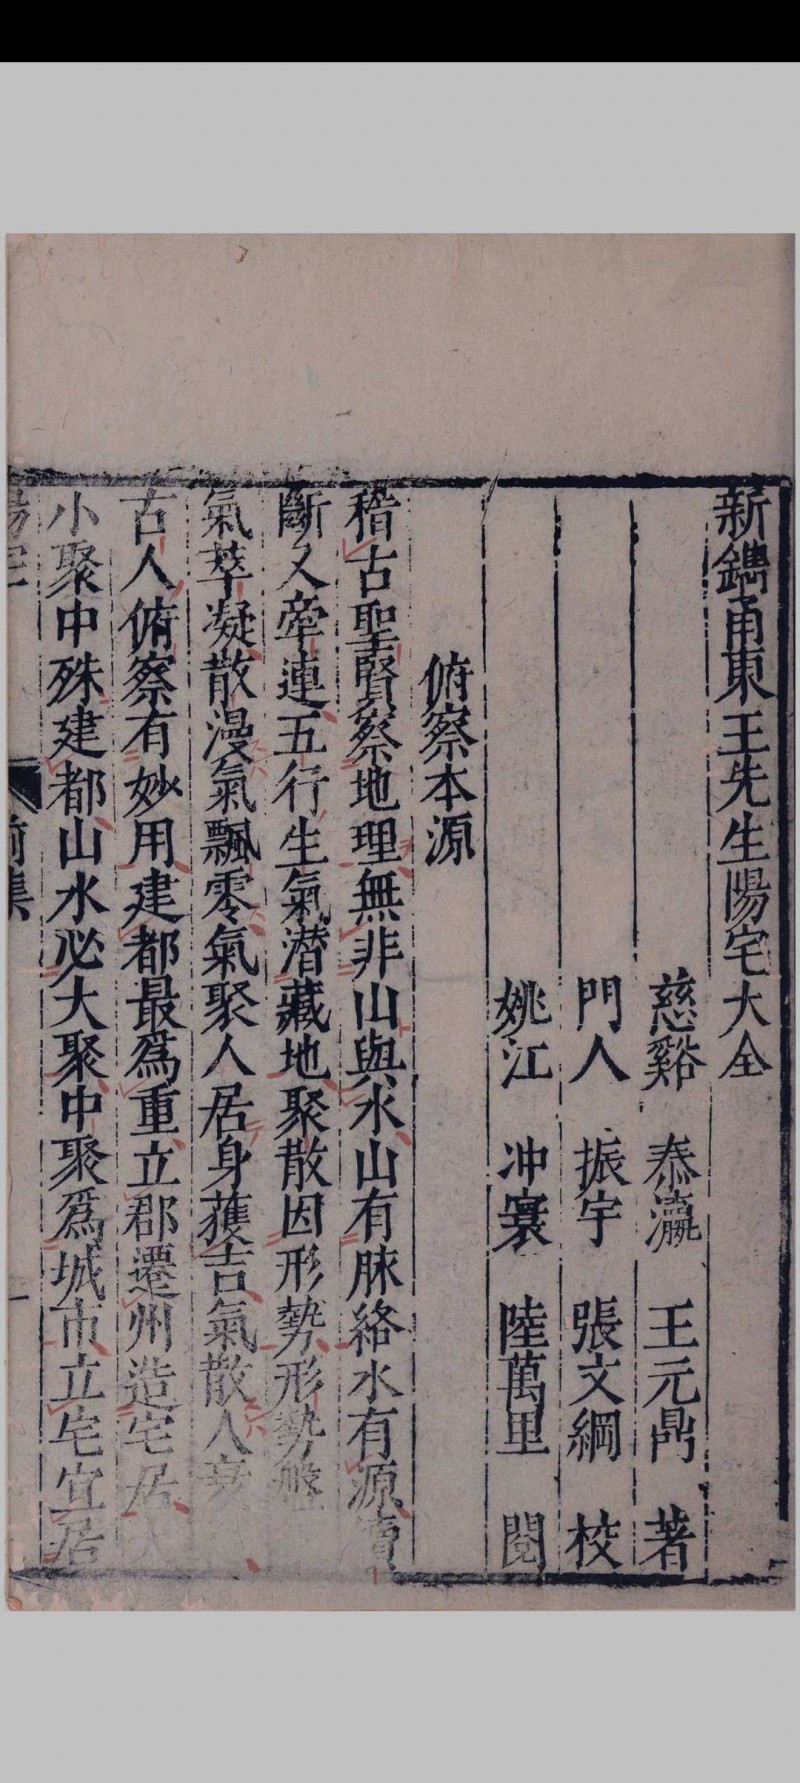 新鐫甬東王先生陽宅大全
慈谿 泰瀛 王元鼎 著
門人 振宇 張文綱 校
姚江 冲寰 陸萬里 閱
俯察本源
稽古聖賢察地理無非山與水山有脉絡水有源
斷又牽連五行生氣潛藏地聚散因形勢形勢盤
氣萃凝散漫氣飄零氣聚人居身獲吉氣散人衰
古人俯察有妙用建都最爲重立郡遷州造宅居大
小聚中殊建都山水必大聚中聚爲城市立宅宜居
陽宅 前集 一